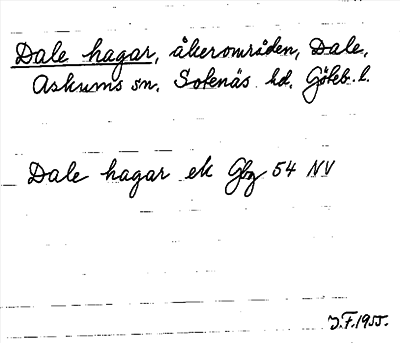 Dale hagar, åkerområden, Dale,
Askums sn. Sotenäs hd. Göteb. l.
Dale hagar ek Gbg 54 NV
J.F.1955.